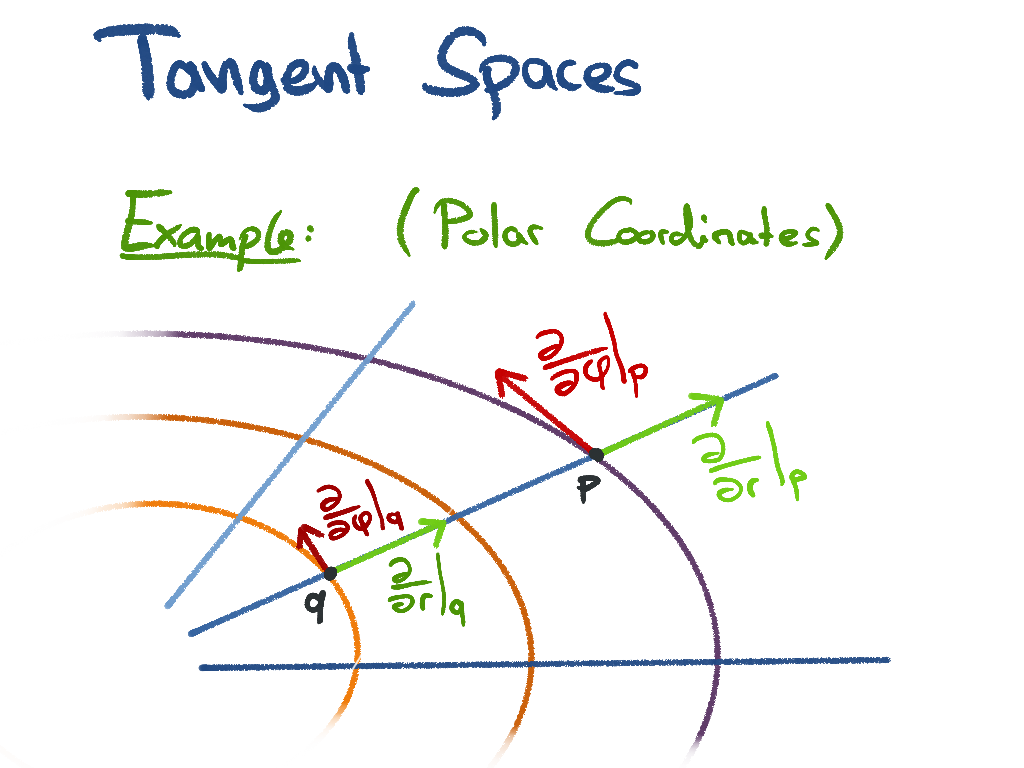 Tangent Spaces
Example: (Polar Coordinates)
∂/∂φ|p
∂/∂r|p
p
∂/∂φ|q
∂/∂r|q
q